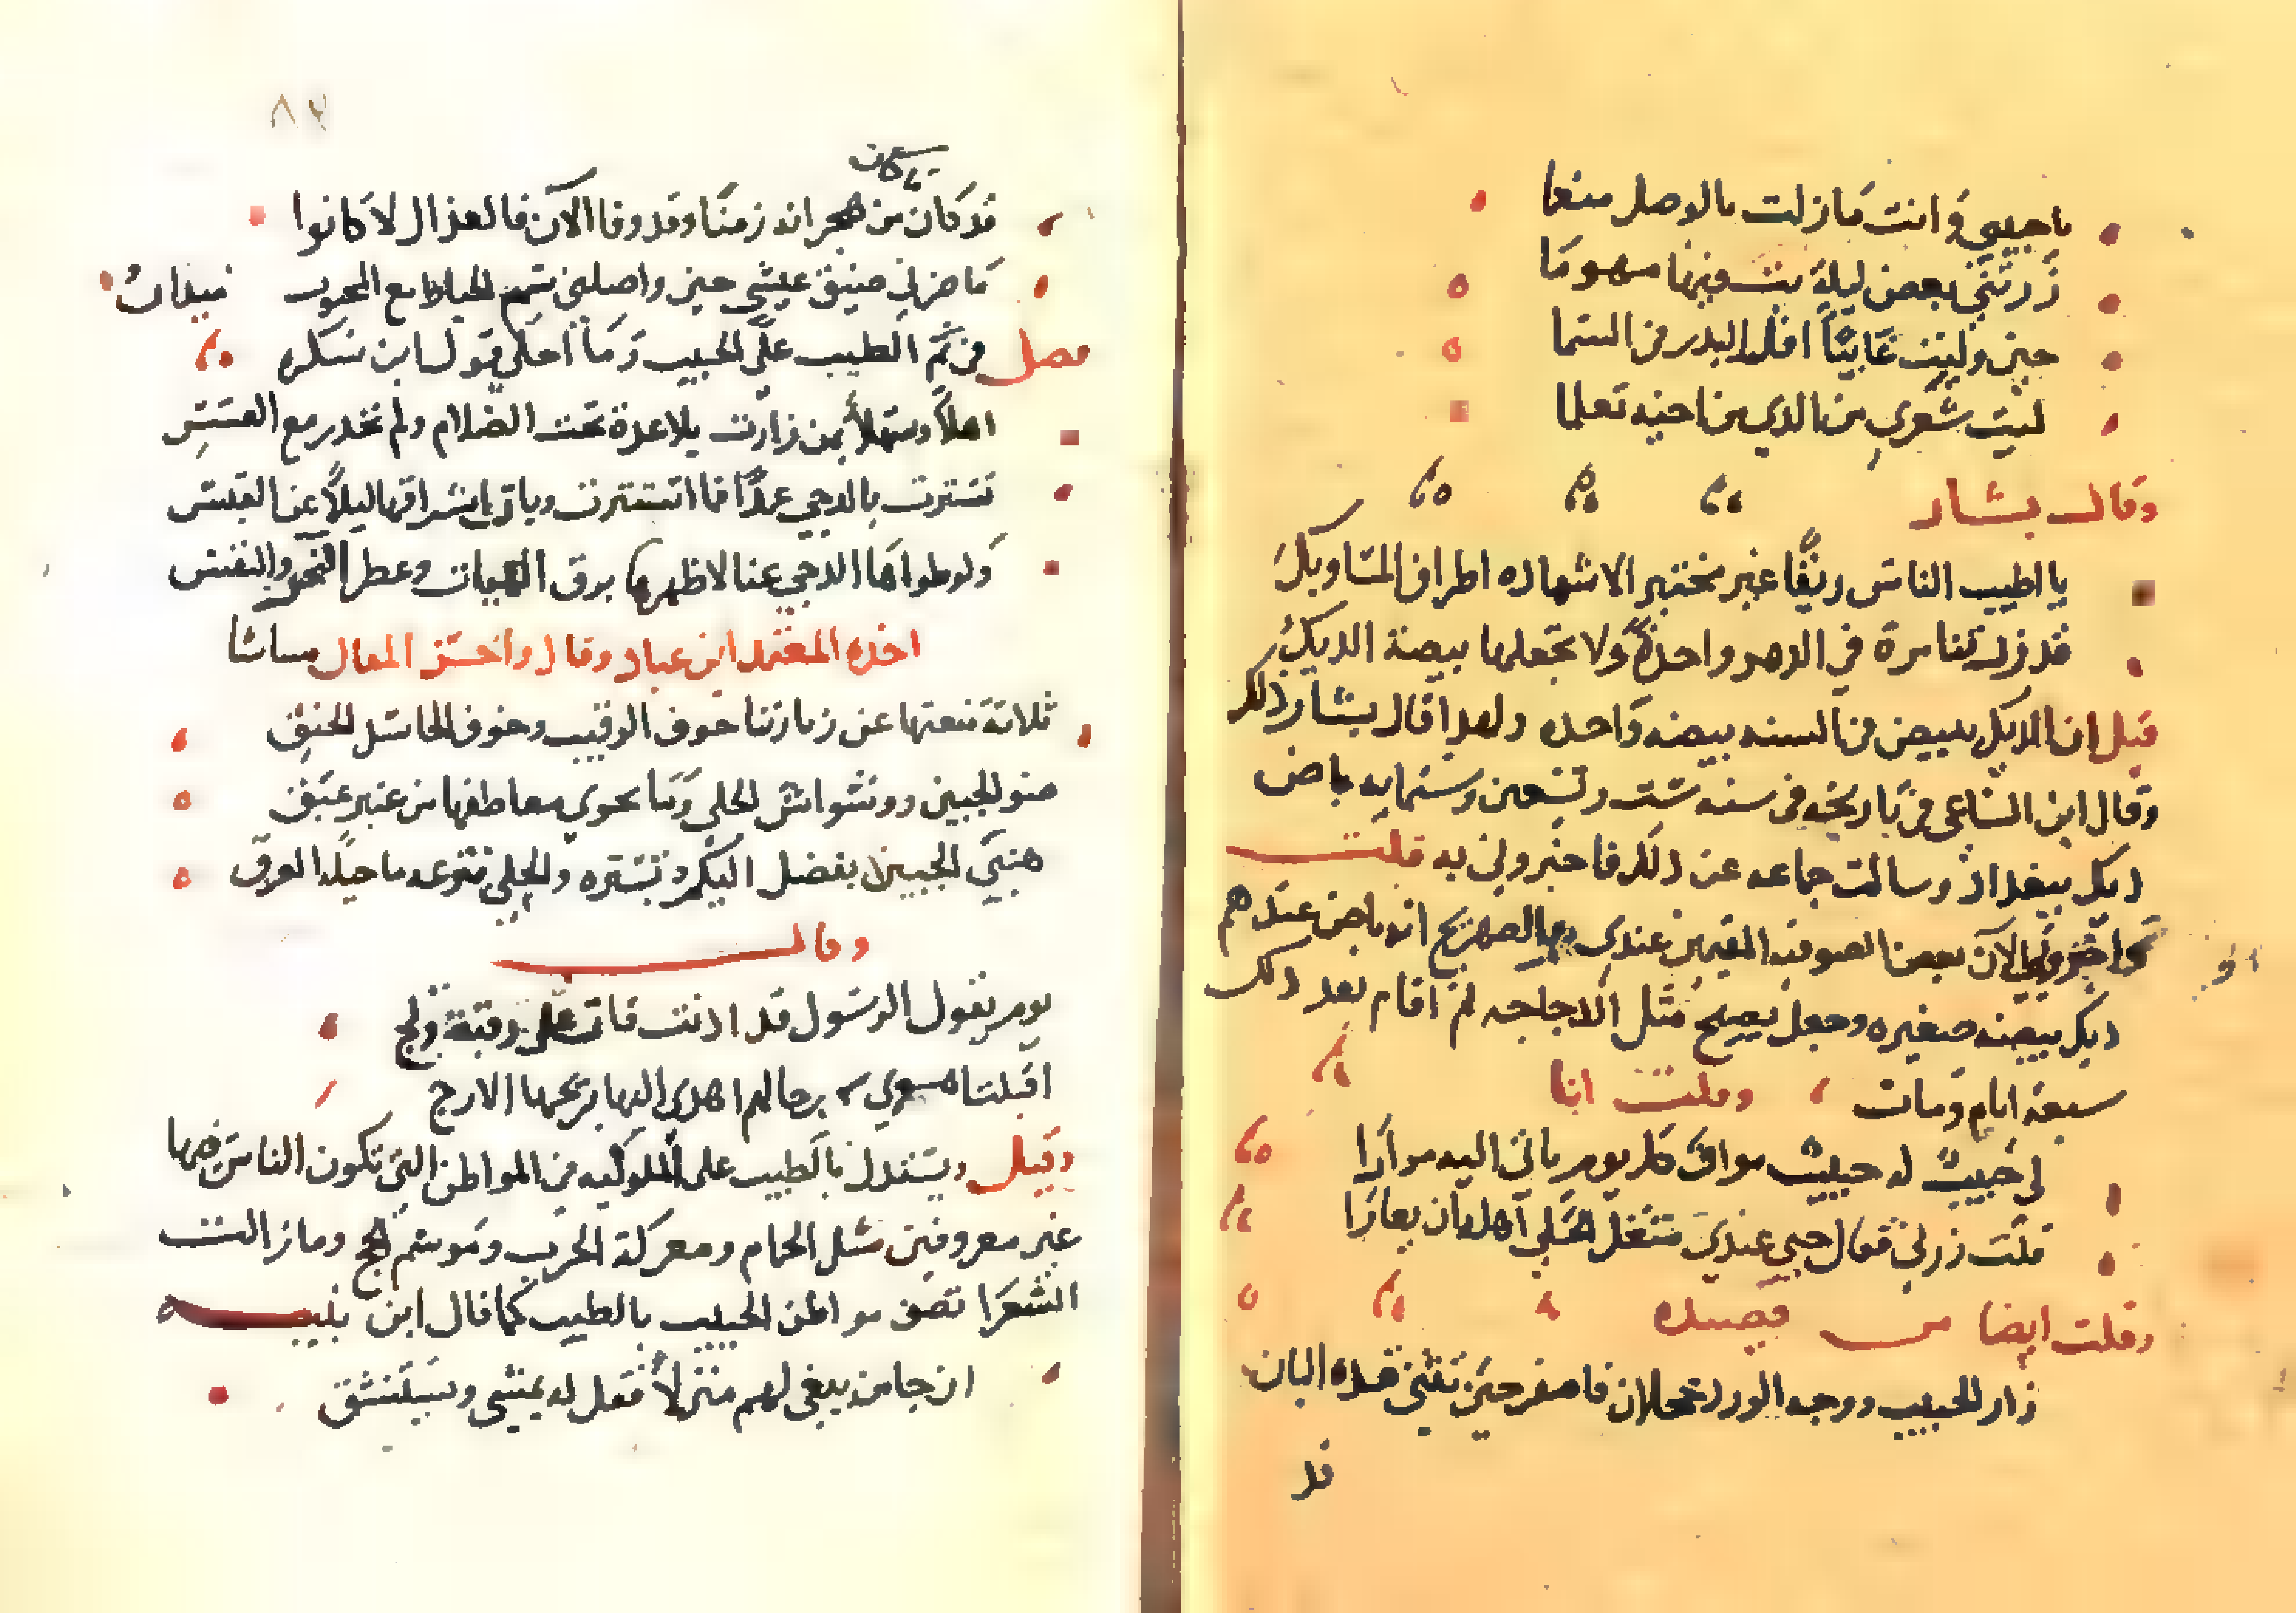 يا حبيبي وانت ما زلت بالوصل منعما
زرتني بعض ليلة بت فيها مهوما
حين وليت غايبًا افل البدر في السما
ليت شعري من الذي من احبه تعلما
وقال بشار
يا اطيب الناس ريقًا غير مختبر الا شهاده اطراف المساويك
قد زرتنا مرة في الدهر واحدة ولا تجعلها بيضة الديك
قيل ان الديك يبيض في السنه بيضه واحده ولهدا قال بشار ذلك
وقال ابن الساعي في تاريخه في سنه ست وتسعين وستمايه باض
ديك ببغداد وسالت جماعه عن ذلك فاخبروني به قلت
واخبروني الآن بعض الصوفيه المقيمين عندي بالصهريج انه باض عندهم
ديك بيضه صغيره وجعل يصيح مثل الدجاجه ثم اقام بعد ذلك
سبعة ايام ومات وقلت انا
لي حبيب له حبيب مواف كل يوم ياتي اليه مرارا
قلت زرني فقال حبي عندي
وقلت ايضا من قصيده
زار الحبيب ووجه الورد خجلان فاصفر حين تثني قده البان
قد
٨٢
قد كان من هجرانه زمنا وقد وفا الآن فالعذال لا كانوا
ما ضرني ضيق عيشي حين واصلني سم الخياط مع المحبوب ميدان
فصل في نم الطيب على الحبيب وما أحلى قول ابن سكره
اهلاً وسهلاً بمن زارت بلا عدة تحت الضلام ولم تحذر مع العسس
تسترت بالدجي عمدًا فما استترت وباق اشراقها ليلاً عن القبس
ولو طواها الدجي عنا لاظهرها برق وعطر النحر والنفس
اخذه المعتمد ابن عباد وقال واحسن المقال ماشا
ثلاثة منعتها عن زيارتنا خوف الرقيب وخوف الحاسد الحنق
ضو الجبين ووسواس الحلي وما يحوي معاطفها من عنبر عبق
هبي الجبين بفضل تستره والحلي تنزعه ما حيلة العرق
وقال
يوم يقول الرسول قد اذنت فات على رقبة ولج
اقبلت اهوي رحالهم اهدى اليها بريحها الارج
وقيل ويستدل بالطيب على الملوكيه في المواطن التي تكون الناس فيها
غير معروفين مثل الحمام ومعركة الحرب وموسم الحج وما زالت
الشعرا تصف مواطن الحبيب بالطيب كما قال ابن
ان جا من يبغي لهم منزلاً فقل له يمشي ويستنشق